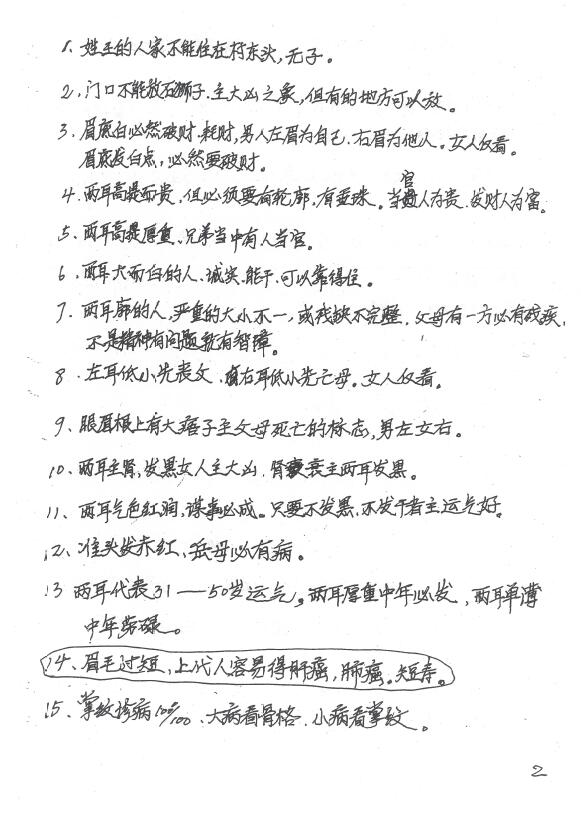 1、姓王的人家不能住在村东头,无子。
2、门口不能放石狮子.主大凶之象,但有的地方可以放。
3、眉底白必然破财.耗财,男人左眉为自己.右眉为他人。女人反看。
眉底发白点,必然要破财。
4、两耳高提而贵,但必须要有轮廓.有垂珠。当官人为贵.发财人为富。
5、两耳高提厚重、兄弟当中有人当官。
6、两耳大而白的人、诚实、能干、可以靠得住。
7、两耳廓的人,严重的大小不一,或残缺不完整,父母有一方必有残疾,
不是精神有问题就有智障。
8、左耳低小先丧父.右耳低小先亡母。女人反看。
9、眼眉根上有大痦子主父母死亡的标志,男左女右。
10、两耳主肾,发黑女人主大凶.肾衰主两耳发黑。
11、两耳气色红润,谋事必成。只要不发黑、不发干者主运气好。
12、准头发赤红、岳母必有病。
13 两耳代表31——50岁运气。两耳厚重中年必发,两耳单薄
中年劳碌。
14、眉毛过短,上代人容易得肝癌,肺癌。短寿。
15、掌纹诊病100/100、大病看骨格、小病看掌纹。
2